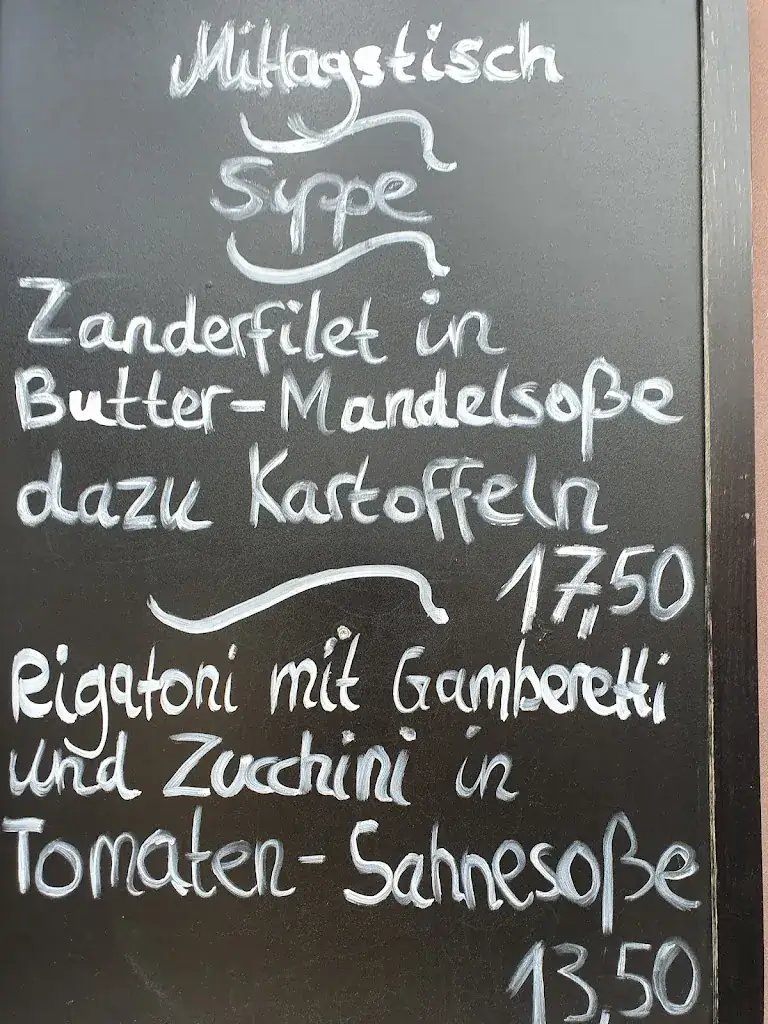 Mittagstisch
Suppe
Zanderfilet in
Butter-Mandelsoße
dazu Kartoffeln
17,50
Rigatoni mit Gamberetti
und Zucchini in
Tomaten-Sahnesoße
13,50